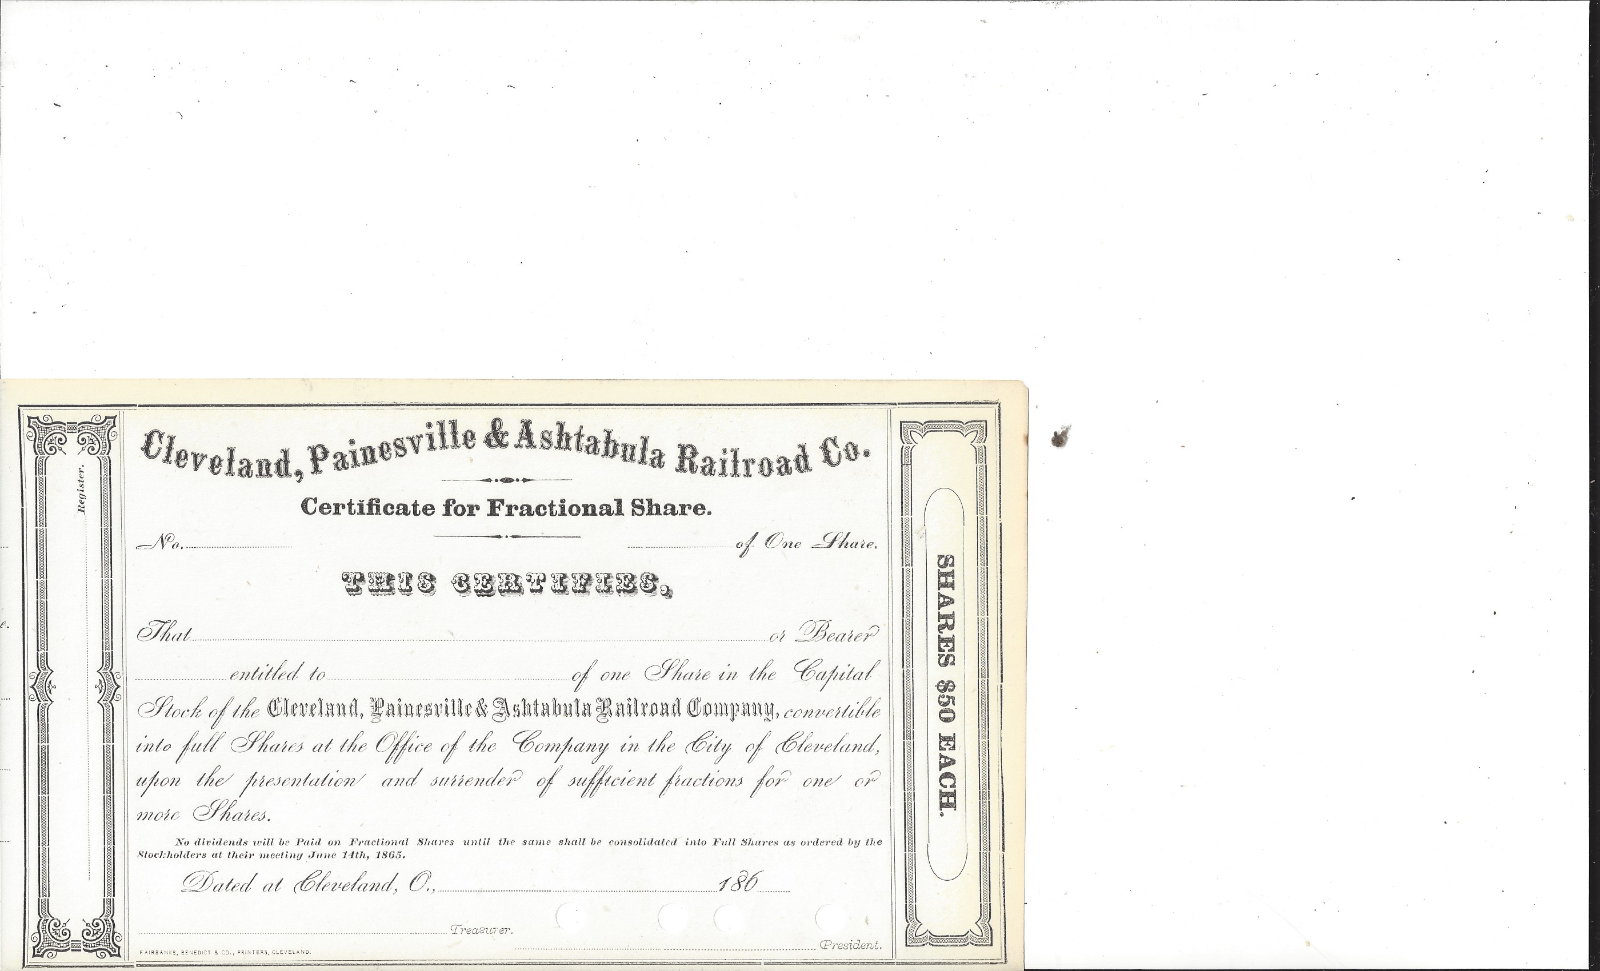 Cleveland, Painesville & Ashtabula Railroad Co.
Certificate for Fractional Share.
No. of One Share.
THIS CERTIFIES,
That or Bearer
entitled to of one Share in the Capital
Stock of the Cleveland, Painesville & Ashtabula Railroad Company, convertible
into full Shares at the Office of the Company in the City of Cleveland,
upon the presentation and surrender of sufficient fractions for one or
more Shares.
No dividends will be Paid on Fractional Shares until the same shall be consolidated into Full Shares as ordered by the
Stockholders at their meeting June 14th, 1865.
Dated at Cleveland, O., 186
Treasurer.
President.
FAIRBANKS, BENEDICT & CO., PRINTERS, CLEVELAND.
Register.
SHARES $50 EACH.